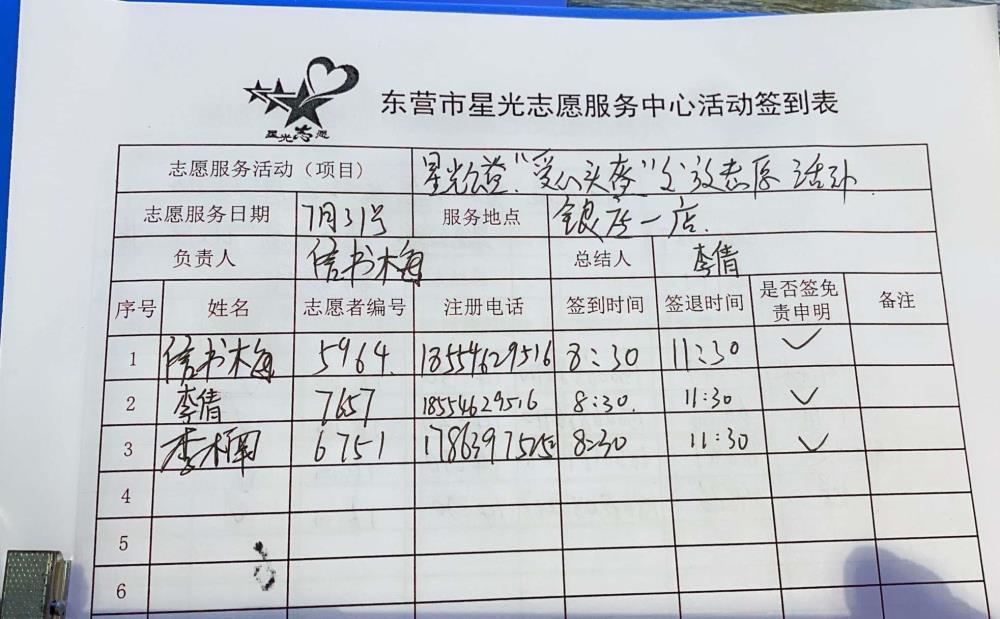 星光志愿
东营市星光志愿服务中心活动签到表
志愿服务活动（项目） 星光公益"爱心头盔"发放志愿活动
志愿服务日期 7月31号 服务地点 银座一店.
负责人 信书梅 总结人 李倩
序号 姓名 志愿者编号 注册电话 签到时间 签退时间 是否签免责申明 备注
1 信书梅 5964. 18554629516 8:30 11:30 ✓
2 李倩 7657 18554629516 8:30. 11:30 ✓
3 李 6751 8:30 11:30 ✓
4
5
6